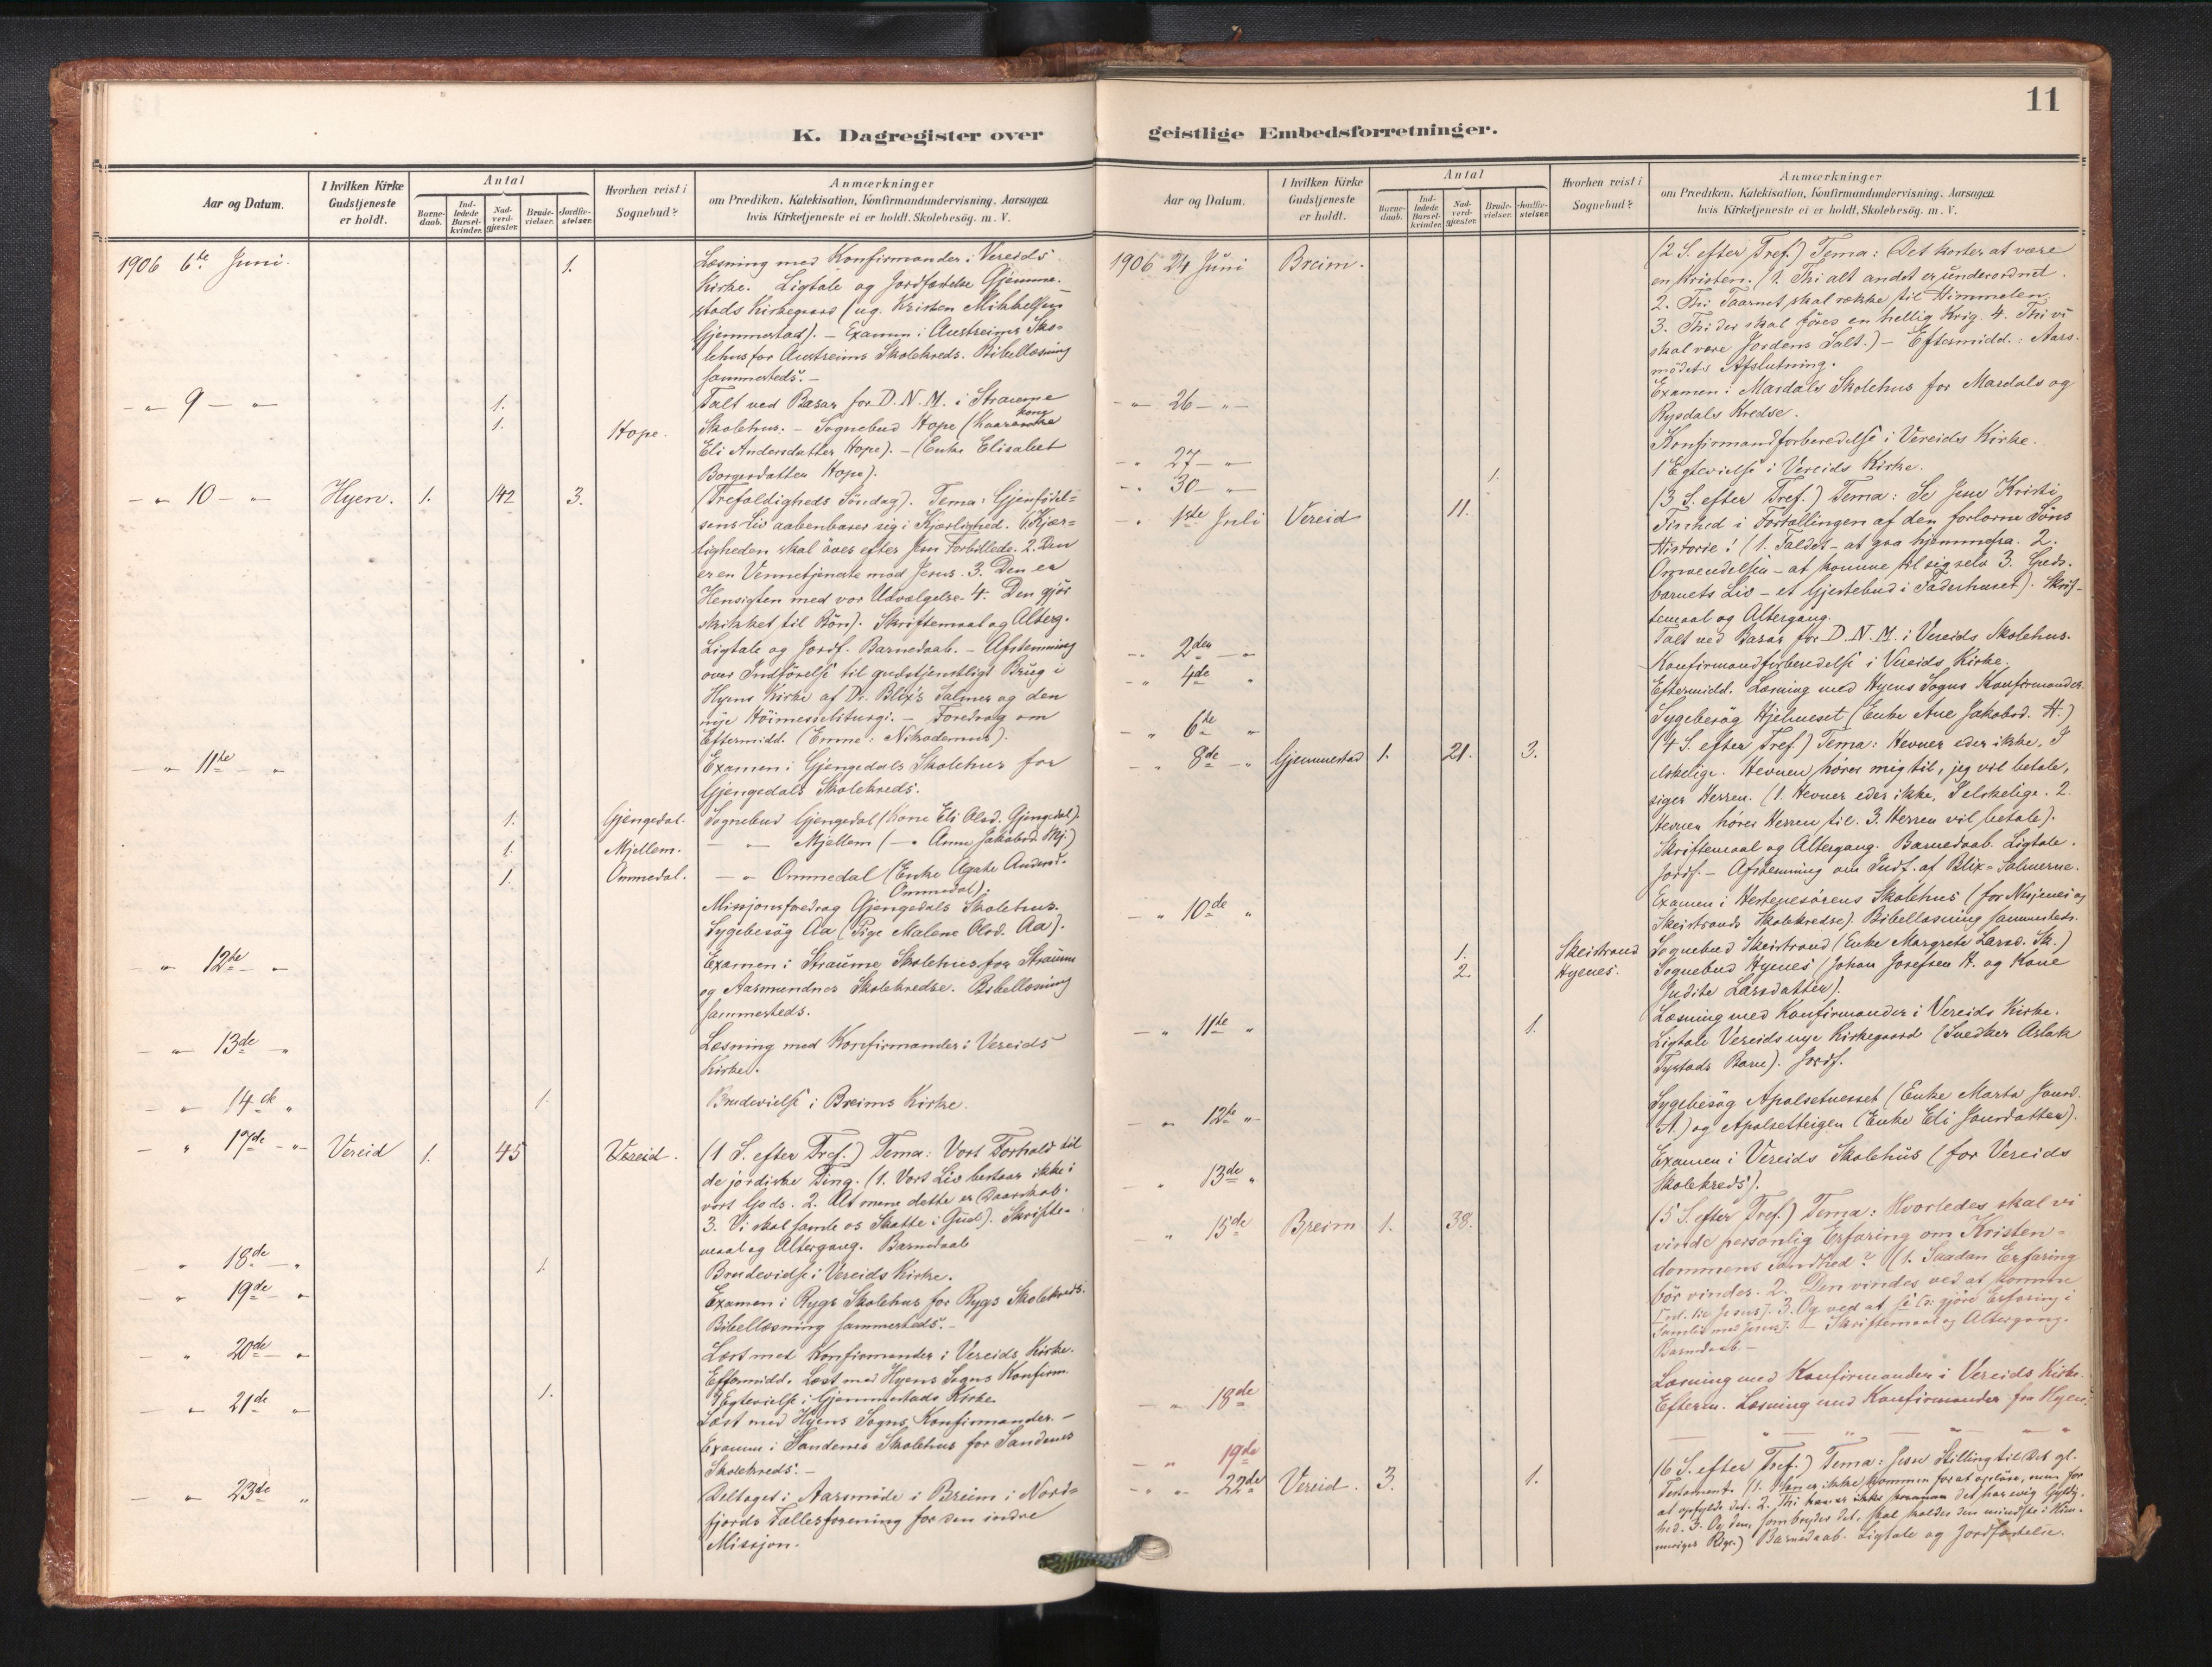 11
K. Dagregister over
geistlige Embedsforretninger.
Aar og Datum.
I hvilken Kirke Gudstjeneste er holdt.
Antal
Barne-daab.
Ind-ledede Barsel-kvinder.
Nad-verd-gjæster.
Brude-vielser.
Jordfæ-stelser.
Hvorhen reist i Sognebud?
Anmærkninger
om Prædiken, Katekisation, Konfirmandundervisning, Aarsagen
hvis Kirketjeneste ei er holdt, Skolebesög. m. V.
1906 6te Juni. 1. Læsning med Konfirmander i Vereids
Kirke. Ligtale og Jordfæstelse Gjemme-
stads Kirkegaard (ug. Kristen Mikkelsen
Gjemmestad). – Examen i Austreims Sko-
lehus for Austreims Skolekreds. Bibellæsning
sammesteds. –
– " 9 – " 1. Talt ved Basar for D. N. M. i Straume
1. Hope. Skolehus. – Sognebud Hope (Kaarkone
Eli Andersdatter Hope). – (Enke Elisabet
Borgersdatter Hope).
– " 10 – " Hyen. 1. 142 3. (Trefoldigheds Söndag). Tema: Gjenfödel-
sens Liv aabenbarer sig i Kjærlighed. (1. Kjær-
ligheden skal öves efter Jesu Forbillede. 2. Den
er en Vennetjeneste mod Jesus. 3. Den er
Hensigten med vor Udvælgelse. 4. Den gjör
skikket til Bön). Skriftemaal og Alterg.
Ligtale og Jordf. Barnedaab. – Afstemning
over Indförelse til gudstjenstligt Brug i
Hyens Kirke af Dr. Blix's Salmer og den
nye Höimesseliturgi. – Foredrag om
Eftermidd. (Emne: Nikodemus).
– " 11te – " Examen i Gjengedals Skolehus for
Gjengedals Skolekreds.
1. Gjengedal. Sognebud Gjengedal (Kone Eli Olsd. Gjengedal).
1. Mjellem. – " Mjellem (– " Anne Jakobsd. Mj.)
1. Ommedal. – " Ommedal (Enke Agate Andersd.
Ommedal).
Missjonsforedrag Gjengedals Skolehus.
Sygebesög Aa (Pige Malene Olsd. Aa).
– " 12te – " Examen i Straume Skolehus for Straume
og Aasmundnes Skolekredse. Bibellæsning
sammesteds.
– " 13de – " Læsning med Konfirmander i Vereids
Kirke.
– " 14de " 1. Brudevielse i Breims Kirke.
– " 17de – " Vereid 1. 45 Vereid. (1 S. efter Tref.) Tema: Vort Forhold til
de jordiske Ting. (1. Vort Liv bestaar ikke i
vort Gods. 2. At mene dette er Daarskab.
3. Vi skal samle os Skatte i Gud). Skrifte-
maal og Altergang. Barnedaab
– " 18de – " 1. Brudevielse i Vereids Kirke.
– " 19de " Examen i Rygs Skolehus for Rygs Skolekreds.
Bibellæsning sammesteds. –
– " 20de – " Læst med Konfirmander i Vereids Kirke.
Eftermidd. Læst med Hyens Sogns Konfirm.
– " 21de " 1. 1 Egtevielse i Gjemmestads Kirke.
Læst med Hyens Sogns Konfirmander. –
Examen i Sandenes Skolehus for Sandenes
Skolekreds. –
– " 23de " Deltaget i Aarsmöde i Breim i Nord-
fjords Fællesforening for den indre
Missjon.
Aar og Datum.
I hvilken Kirke Gudstjeneste er holdt.
Antal
Barne-daab.
Ind-ledede Barsel-kvinder.
Nad-verd-gjæster.
Brude-vielser.
Jordfæ-stelser.
Hvorhen reist i Sognebud?
Anmærkninger
om Prædiken, Katekisation, Konfirmandundervisning, Aarsagen
hvis Kirketjeneste ei er holdt, Skolebesög. m. V.
1906 24 Juni Breim. (2 S. efter Tref.) Tema: Det koster at være
en Kristen. (1. Thi alt andet er underordnet.
2. Thi Taarnet skal række til Himmelen,
3. Thi der skal föres en hellig Krig. 4. Thi vi
skal være Jordens Salt.) – Eftermidd.: Aars-
mödets Afslutning.
– " 26 – " – Examen i Mardals Skolehus for Mardals og
Rysdals Kredse.
– " 27 – " Konfirmandforberedelse i Vereids Kirke.
– " 30 – " 1. 1 Egtevielse i Vereids Kirke.
– " 1ste Juli Vereid 11. (3 S. efter Tref.) Tema: Se Jesu Kristi
Finhed i Fortællingen af den forlorne Söns
Historie! (1. Faldet – at gaa hjemmefra. 2.
Omvendelsen – at komme til sig selv 3. Guds-
barnets Liv – et Gjestebud i Faderhuset). Skrif-
temaal og Altergang.
– " 2den – " Talt ved Basar for D. N. M. i Vereids Skolehus.
– " 4de " Konfirmandforberedelse i Vereids Kirke.
Eftermidd. Læsning med Hyens Sogns Konfirmander.
– " 6te " Sygebesög Hjelmeset (Enke Ane Jakobsd. H.)
– " 8de – " Gjemmestad 1. 21. 3. (4 S. efter Tref.) Tema: Hevner eder ikke, I
elskelige. Hevnen hörer mig til, jeg vil betale,
siger Herren. (1. Hevner eder ikke, I elskelige. 2.
Hevnen hörer Herren til. 3. Herren vil betale).
Skriftemaal og Altergang. Barnedaab. Ligtale.
Jordf. – Afstemning om Indf. af Blix-Salmerne.
– " 10de " Examen i Hestenesörens Skolehus (for Nesjenes og
Skeistrands Skolekredse). Bibellæsning sammesteds.
1. Skeistrand Sognebud Skeistrand (Enke Margrete Larsd. Sk.)
2. Hyenes. Sognebud Hyenes (Johan Josefsen H. og Kone
Judite Larsdatter).
– " 11te " 1. Læsning med Konfirmander i Vereids Kirke.
Ligtale Vereids nye Kirkegaard (Snedker Aslak
Tystads Barn). Jordf.
– " 12te " – Sygebesög Apalsetnesset (Enke Marta Jonsd.
A.) og Apalsetteigen (Enke Eli Jonsdatter).
– " 13de " Examen i Vereids Skolehus (for Vereids
Skolekreds).
– " 15de Breim 1. 38. (5 S. efter Tref.) Tema: Hvorledes skal vi
vinde personlig Erfaring om Kristen-
dommens Sandhed? (1. Saadan Erfaring
bör vindes. 2. Den vindes ved at komme
[til Jesus]. 3. Og ved at se [ɔ: gjöre Erfaring i
Samliv med Jesus]. – Skriftemaal og Altergang.
Barnedaab. –
– " 18de Læsning med Konfirmander i Vereids Kirke.
Efterm. Læsning med Konfirmander fra Hyen.
– " 19de – " – " – " – "
– " 22de Vereid. 3. 1. (6 S. efter Tref.) Tema: Jesu Stilling til det gl.
Testament. (1. Han er ikke kommen for at oplöse, men for
at opfylde det. 2. Thi det har evig Gyldig-
hed. 3. Og den, som bryder det, skal kaldes den mindste i Him-
meriges Rige.) Barnedaab. Ligtale og Jordfæstelse.